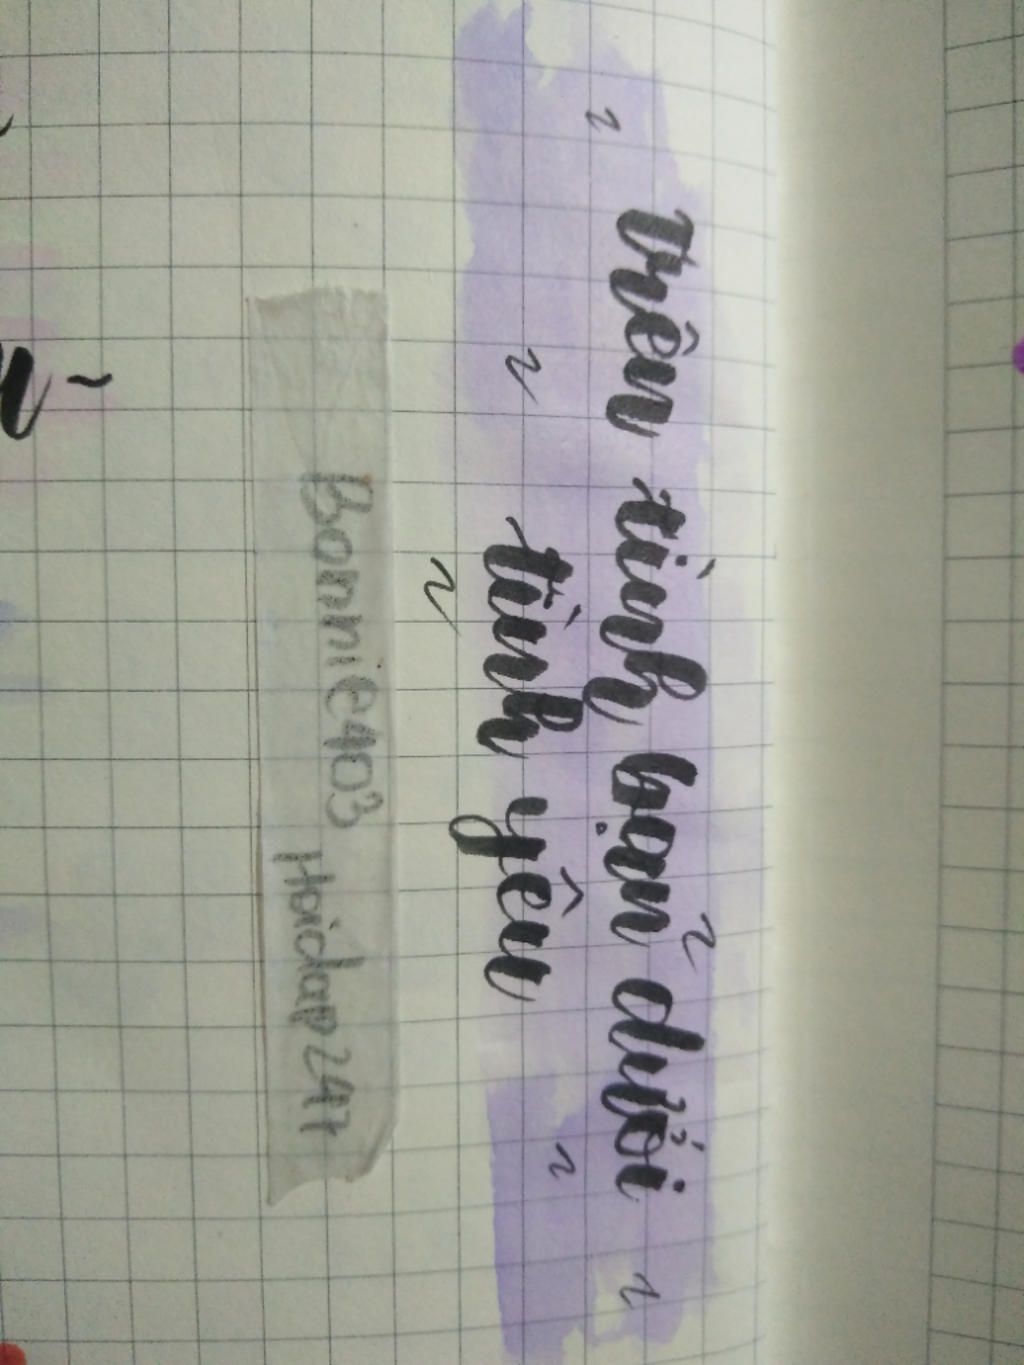 trên tình bạn dưới
tình yêu
Bonnie403 Hoidap247